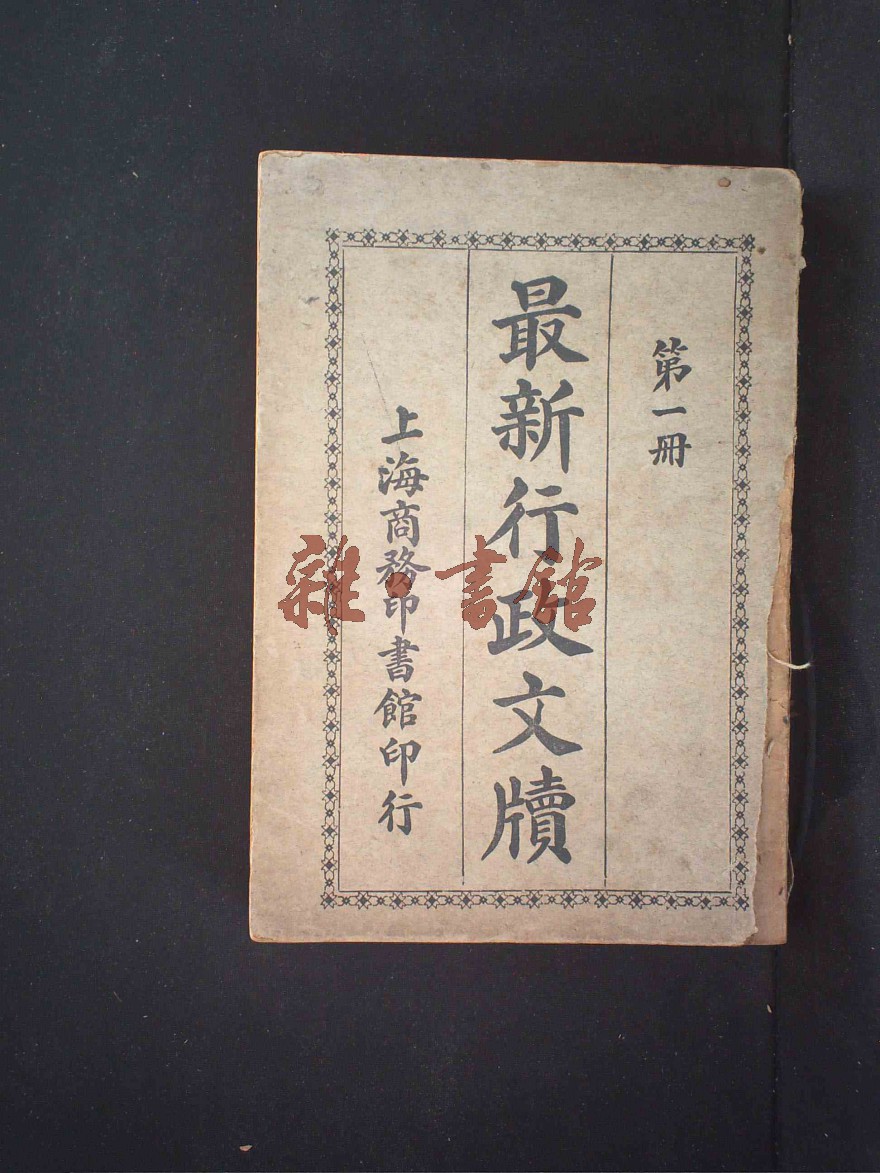 第一冊
最新行政文牘
上海商務印書館印行
雜·書館